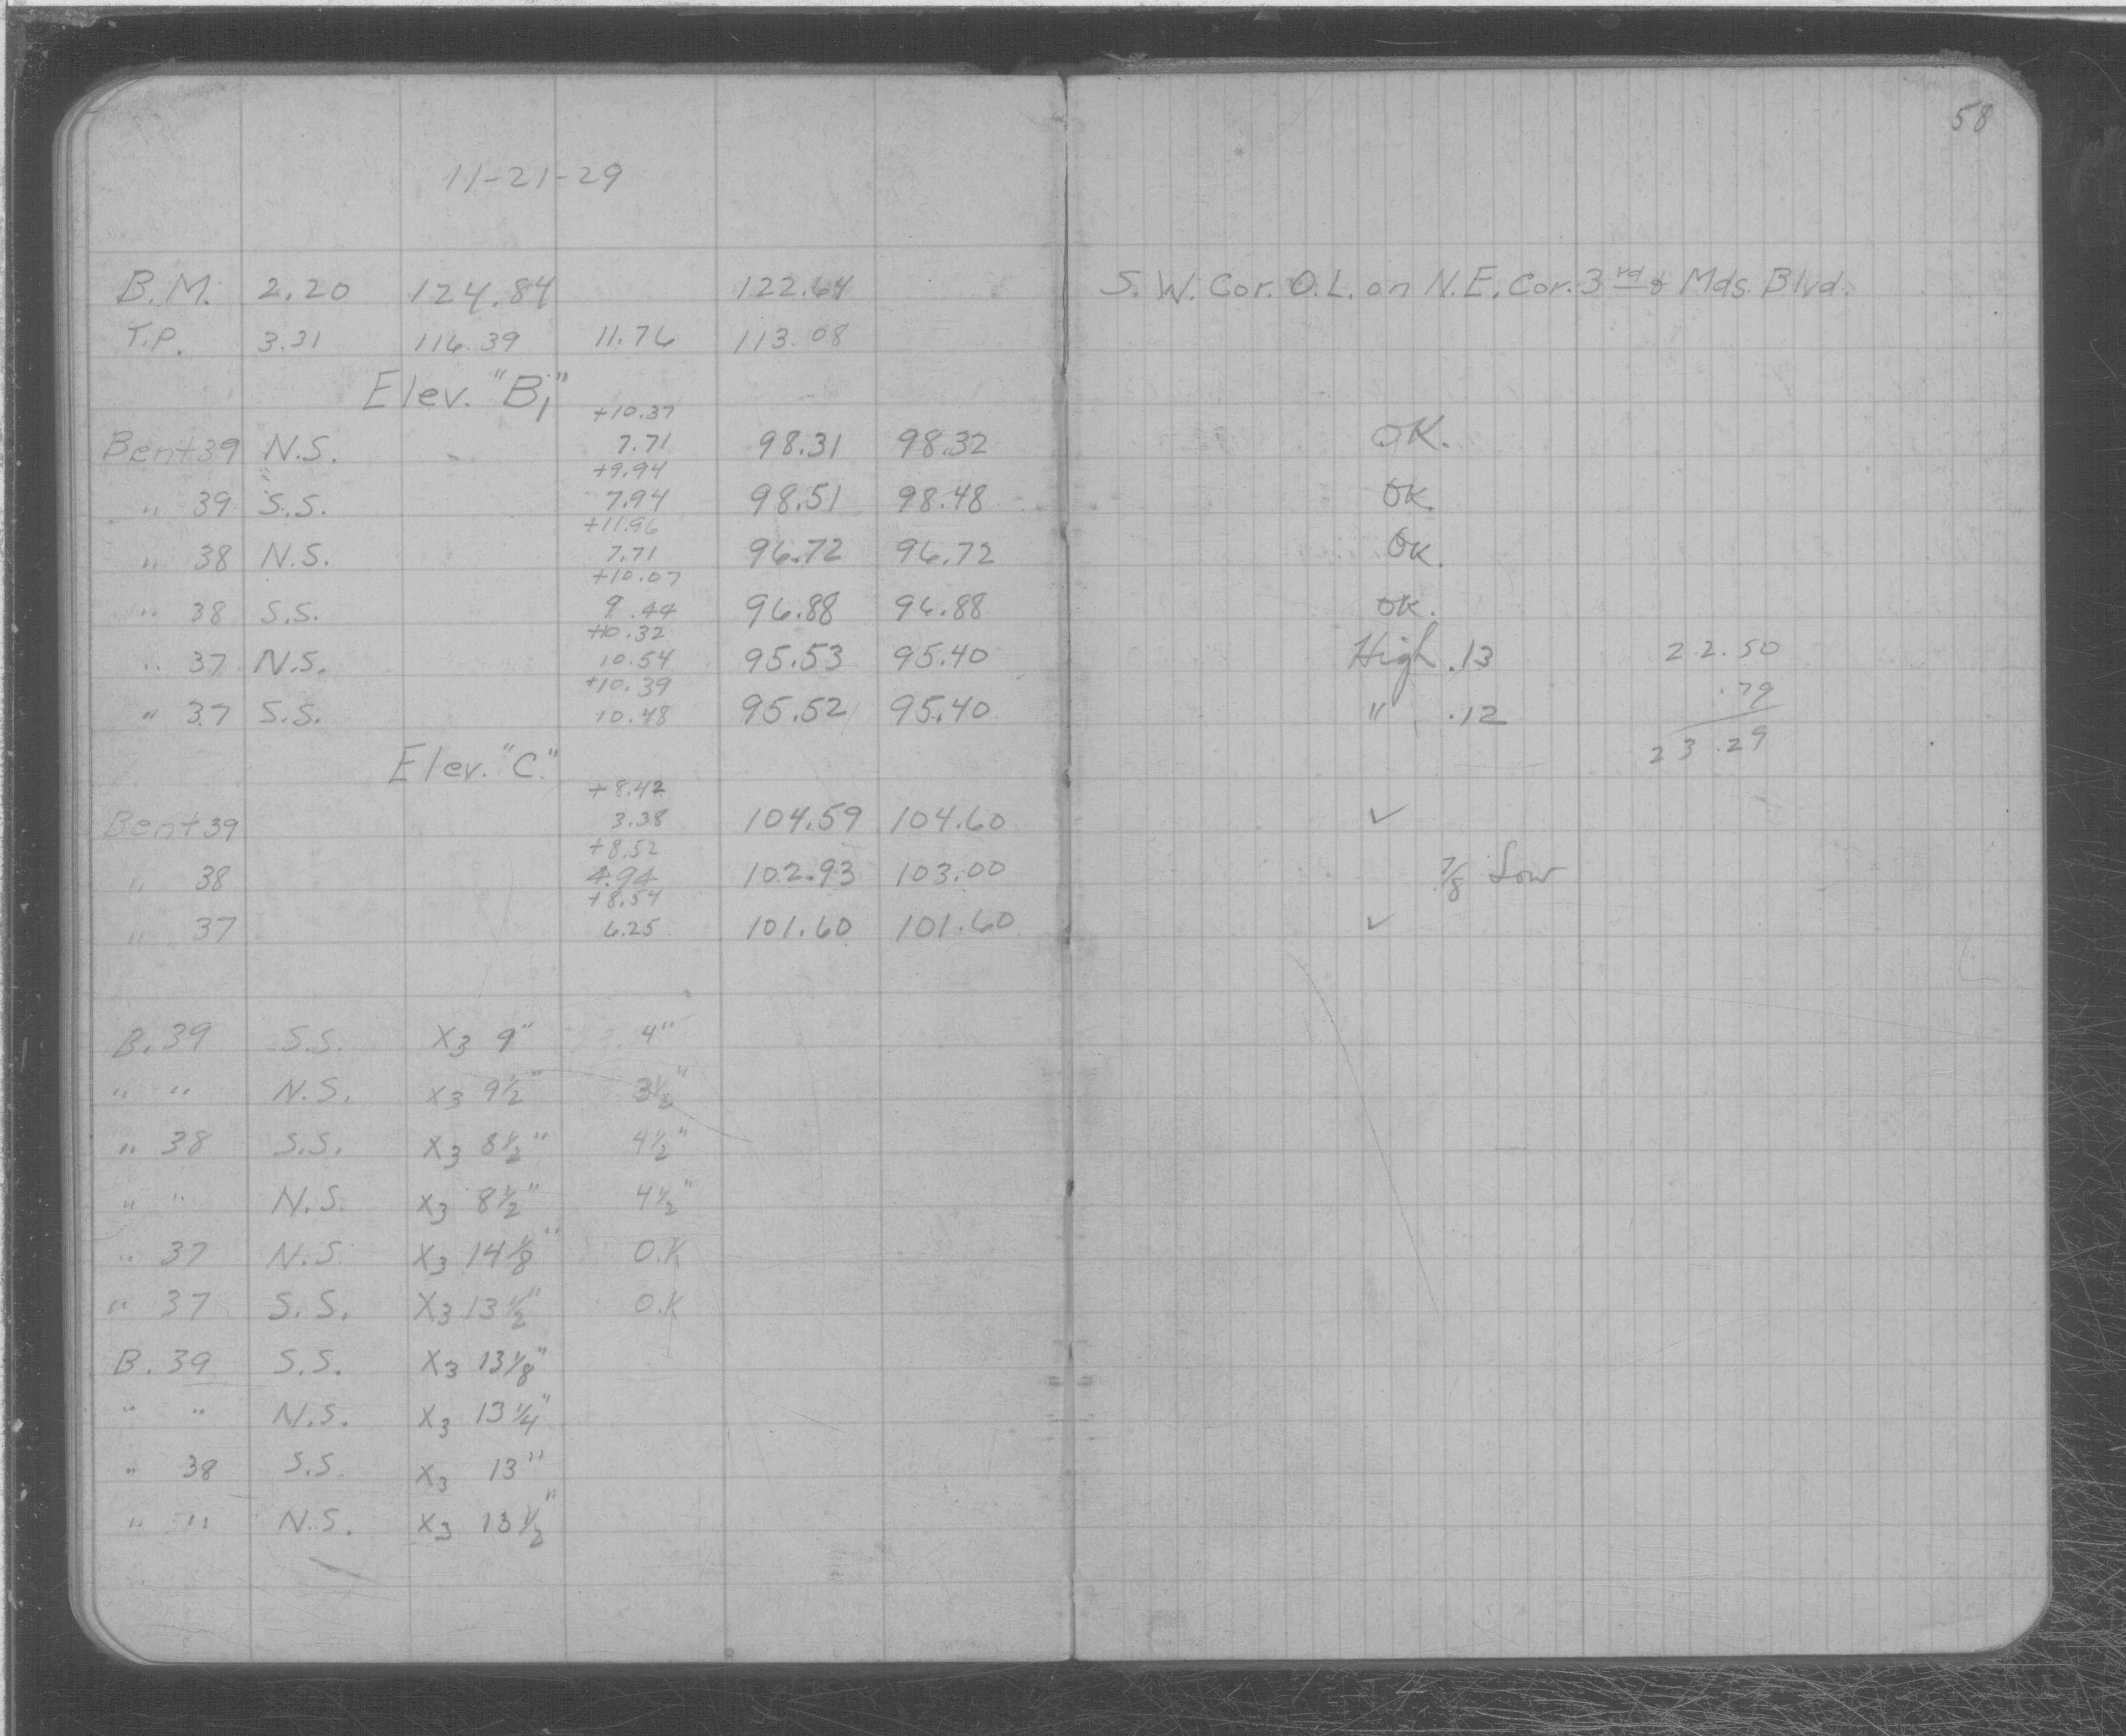 58
11-21-29
B.M. 2.20 124.84 122.64 S.W. Cor. O.L. on N.E. Cor. 3rd & Mds. Blvd.
T.P. 3.31 116.39 11.76 113.08
Elev. "B1"
+10.37
Bent 39 N.S. 7.71 98.31 98.32 OK.
+9.94
" 39 S.S. 7.94 98.51 98.48 OK.
+11.96
" 38 N.S. 7.71 96.72 96.72 OK.
+10.07
" 38 S.S. 9.44 96.88 96.88 OK.
+10.32
" 37 N.S. 10.54 95.53 95.40 High .13 22.50
+10.39 .79
" 37 S.S. 10.48 95.52 95.40 " .12
23.29
Elev. "C"
+8.42
Bent 39 3.38 104.59 104.60 ✓
+8.52
" 38 4.94 102.93 103.00 7/8 Low
+8.54
" 37 6.25 101.60 101.60 ✓
B. 39 S.S. X3 9" 4"
" " N.S. X3 9 1/2" 3 1/2"
" 38 S.S. X3 8 1/2" 4 1/2"
" " N.S. X3 8 1/2" 4 1/2"
" 37 N.S. X3 14 1/8" O.K
" 37 S.S. X3 13 1/2" O.K
B. 39 S.S. X3 13 1/8"
" " N.S. X3 13 1/4"
" 38 S.S. X3 13"
" " N.S. X3 13 1/2"